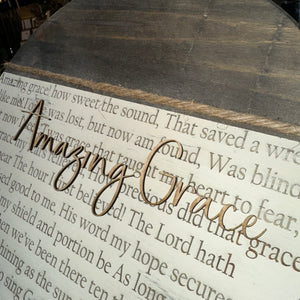 Amazing grace! how sweet the sound, That saved a wre
like me! I was lost, but now am found, Was blind
now I Twas grace that taught my heart to fear,
grac my fears How precious did that grace
pear The hour I first believed! The Lord hath
ised good to me. His word my hope secures
my shield and portion be As long
hen we've been there ten th
shining as the sun
to sing G
Amazing Grace